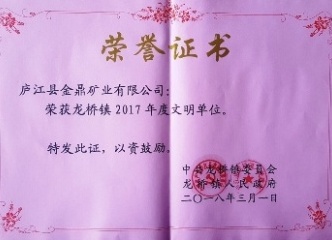 荣誉证书
庐江县金鼎矿业有限公司:
荣获龙桥镇2017年度文明单位。
特发此证,以资鼓励。
中共龙桥镇委员会
龙桥镇人民政府
二〇一八年三月一日